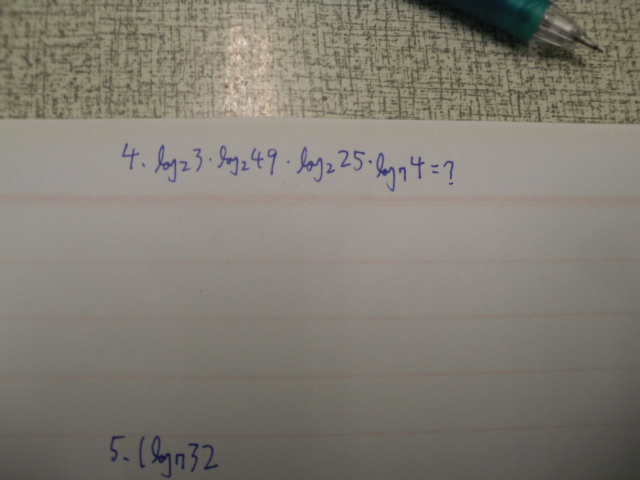 4. log₂3·log₂49·log₂25·log₇4=?
5. (log₇32